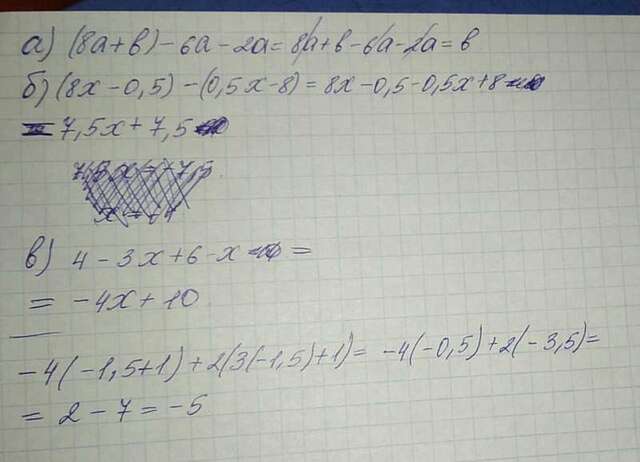 а) (8a+b)-6a-2a=8a+b-6a-2a=b
б) (8x-0,5)-(0,5x-8)=8x-0,5-0,5x+8
= 7,5x+7,5
в) 4-3x+6-x =
= -4x+10
-4(-1,5+1)+2(3(-1,5)+1)= -4(-0,5)+2(-3,5)=
= 2-7=-5